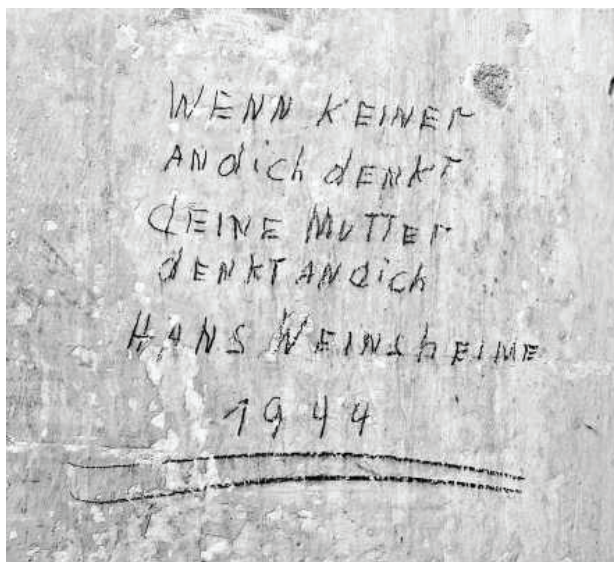 WENN KEINER
ANdich dENKT
dEINE MUTTEr
dENKT ANdich
HANS WEINShEIME
1944